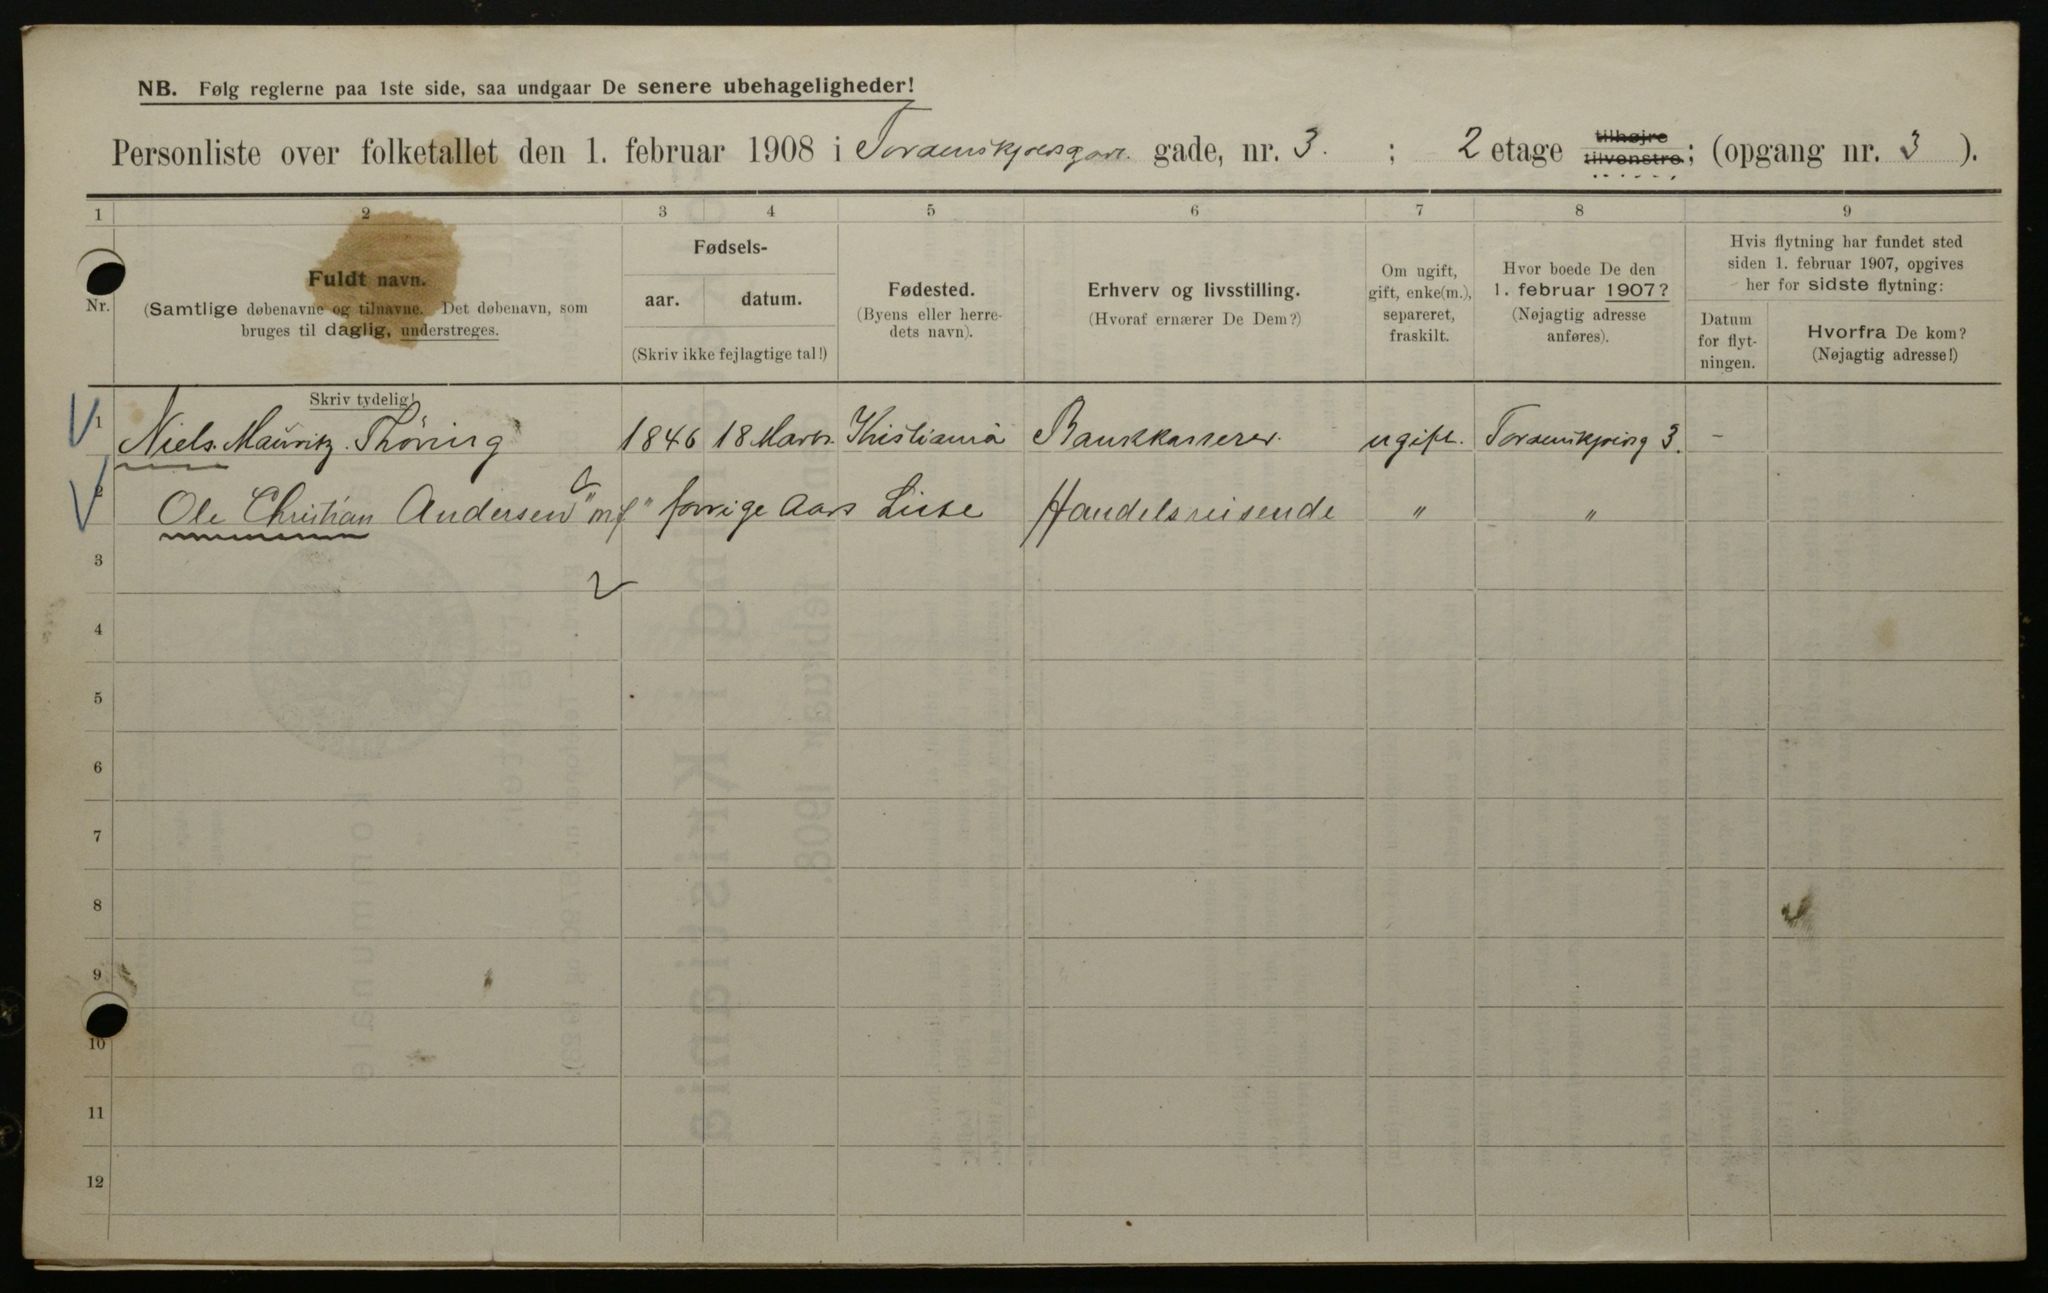 NB. Følg reglerne paa 1ste side, saa undgaar De senere ubehageligheder!
Personliste over folketallet den 1. februar 1908 i Tordenskjoldsgade gade, nr. 3. ; 2 etage tilhøjre tilvenstre; (opgang nr. 3 ).
1 2 3 4 5 6 7 8 9
Nr.
Fuldt navn.
(Samtlige døbenavne og tilnavne. Det døbenavn, som
bruges til daglig, understreges.
Skriv tydelig!
Fødsels-
aar. datum.
(Skriv ikke fejlagtige tal!)
Fødested.
(Byens eller herre-
dets navn).
Erhverv og livsstilling.
(Hvoraf ernærer De Dem?)
Om ugift,
gift, enke(m.),
separeret,
fraskilt.
Hvor boede De den
1. februar 1907?
(Nøjagtig adresse
anføres).
Hvis flytning har fundet sted
siden 1. februar 1907, opgives
her for sidste flytning:
Datum
for flyt-
ningen.
Hvorfra De kom?
(Nøjagtig adresse!)
1 Niels Mauritz Thöring 1846 18 Marts Kristiania Bankkasserer ugift. Tordenskjoldsg 3. -
2 Ole Christian Andersen "m/" forrige Aars Liste Handelsreisende " "
3
4
5
6
7
8
9
10
11
12